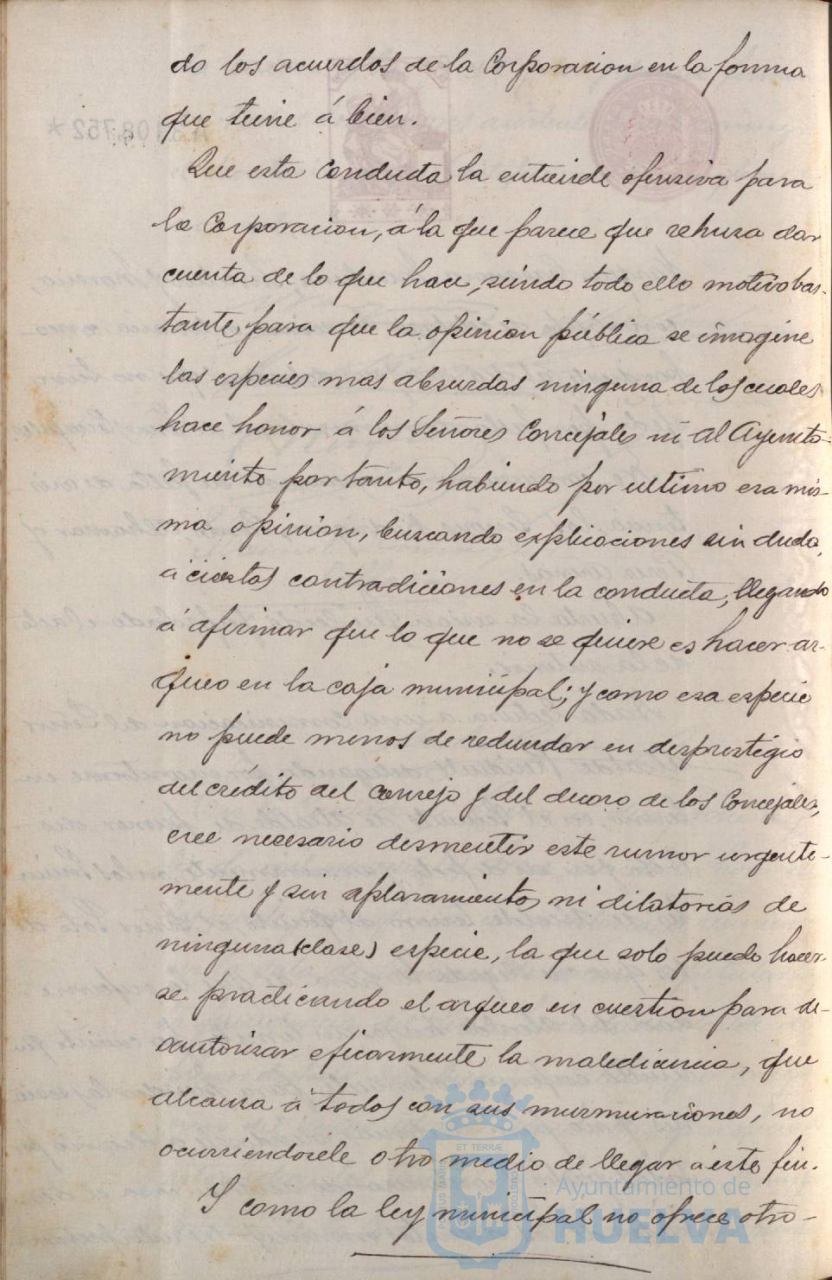 do los acuerdos de la Corporacion en la forma
que tiene á bien.
Que esta conducta la entiende ofensiva para
la Corporacion, á la que parece que rehusa dar
cuenta de lo que hace, siendo todo ello motivo bas-
tante para que la opinion pública se imagine
las especies mas absurdas ninguna de las cuales
hace honor á los Señores Concejales ni al Ayunta-
miento por tanto, habiendo por ultimo esa mis-
ma opinion, buscando explicaciones sin duda,
á ciertas contradiciones en la conducta, llegando
á afirmar que lo que no se quiere es hacer ar-
queo en la caja municipal; y como esa especie
no puede menos de redundar en desprestigio
del crédito del Consejo y del decoro de los Concejales,
cree necesario desmentir este rumor urgente-
mente y sin aplazamientos ni dilatorias de
ninguna (clase) especie, la que solo puede hacer-
se practicando el arqueo en cuestion para de-
sautorizar eficazmente la maledicencia, que
alcanza á todos con sus murmuraciones, no
ocurriendosele otro medio de llegar á este fin.
Y como la ley municipal no ofrece otro-
Ayuntamiento de
HUELVA